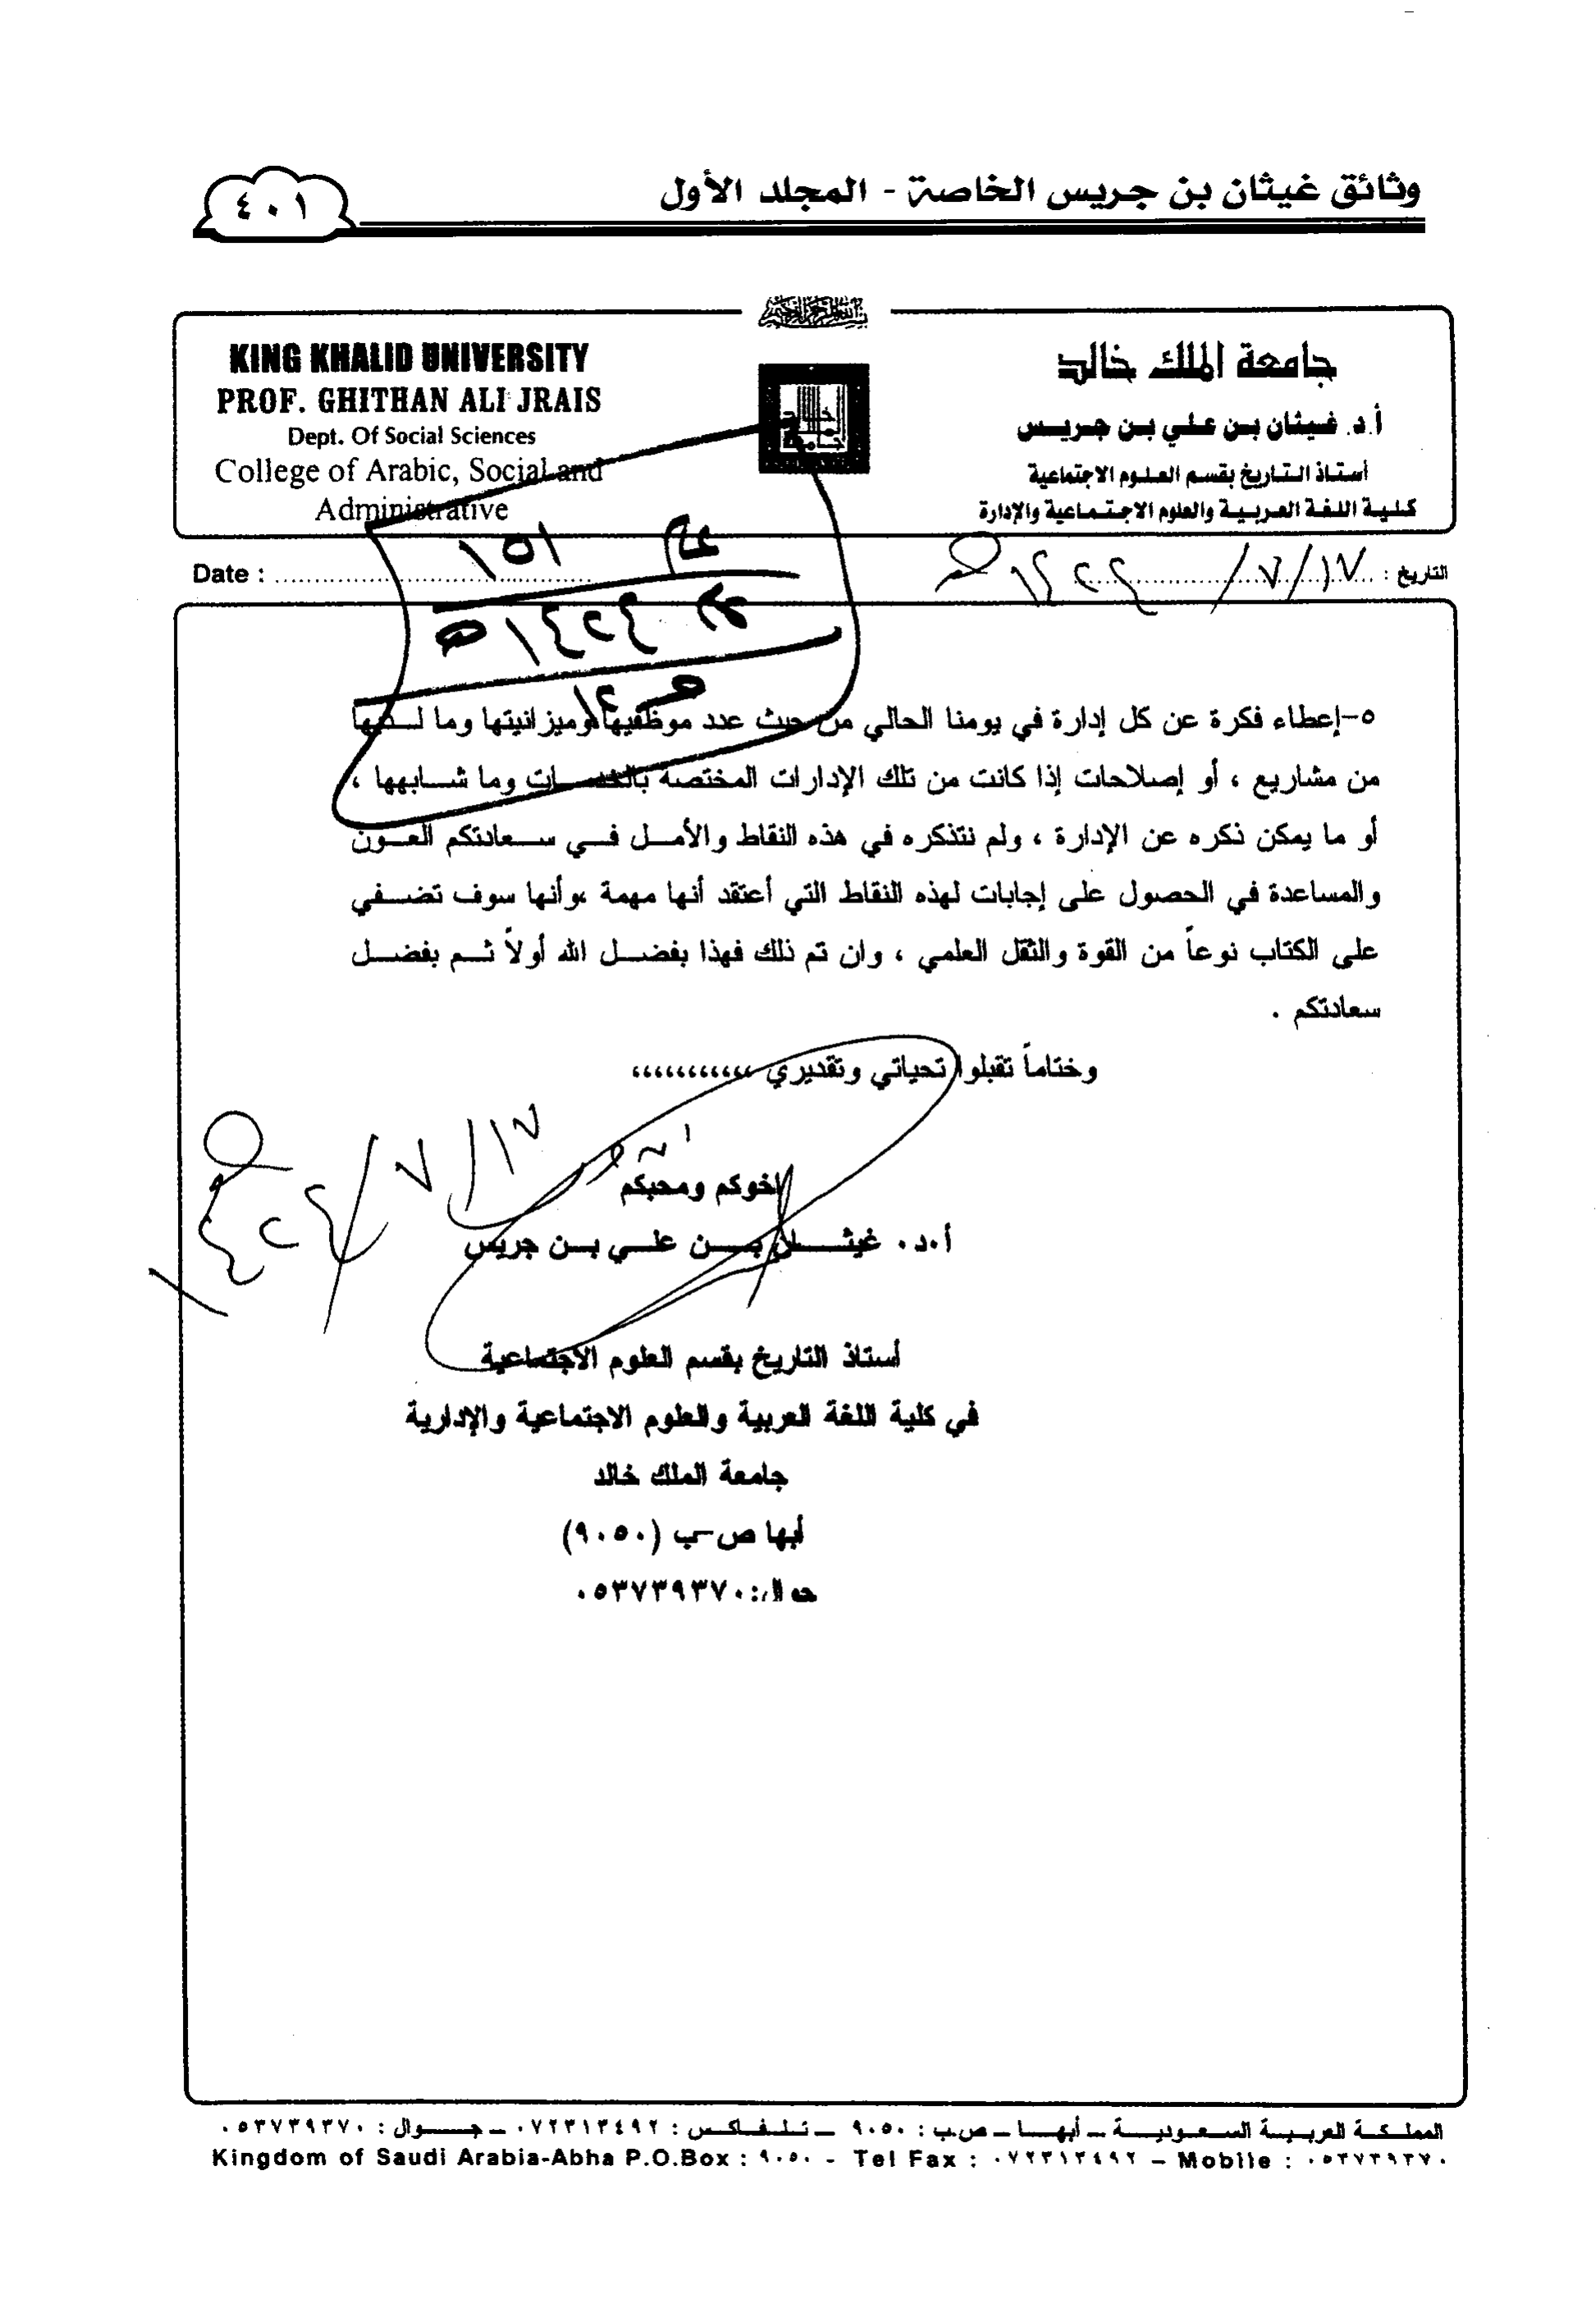 وثائق غيثان بن جريس الخاصة - المجلد الأول
٤٠١
جامعة الملك خالد
أ.د. غيثان بن علي بن جريس
أستاذ التاريخ بقسم العلوم الاجتماعية
كلية اللغة العربية والعلوم الاجتماعية والإدارة
KING KHALID UNIVERSITY
PROF. GHITHAN ALI JRAIS
Dept. Of Social Sciences
College of Arabic, Social and
Administrative
التاريخ : ١٧/٧/١٤٢٤هـ
Date :
١٥١
١٤٢٤هـ
٥-إعطاء فكرة عن كل إدارة في يومنا الحالي من حيث عدد موظفيها وميزانيتها وما لديها
من مشاريع ، أو إصلاحات إذا كانت من تلك الإدارات المختصة بالخدمات وما شابهها ،
أو ما يمكن ذكره عن الإدارة ، ولم نتذكره في هذه النقاط والأمل في سعادتكم العون
والمساعدة في الحصول على إجابات لهذه النقاط التي أعتقد أنها مهمة ،وأنها سوف تضفي
على الكتاب نوعاً من القوة والثقل العلمي ، وان تم ذلك فهذا بفضل الله أولاً ثم بفضل
سعادتكم .
وختاماً تقبلوا تحياتي وتقديري ،،،،،،،،،،،
أخوكم ومحبكم
١٧/٧/١٤٢٤هـ
أ.د. غيثان بن علي بن جريس
أستاذ التاريخ بقسم العلوم الاجتماعية
في كلية اللغة العربية والعلوم الاجتماعية والإدارية
جامعة الملك خالد
أبها ص-ب (٩٠٥٠)
جوال:٠٥٣٧٣٩٣٧٠
المملكة العربية السعودية – أبها – ص.ب : ٩٠٥٠ – تلفاكس : ٠٧٢٣١٣٤٩٢ – جوال : ٠٥٣٧٣٩٣٧٠
Kingdom of Saudi Arabia-Abha P.O.Box : ٩٠٥٠ - Tel Fax : ٠٧٢٣١٣٤٩٢ – Mobile : ٠٥٣٧٣٩٣٧٠